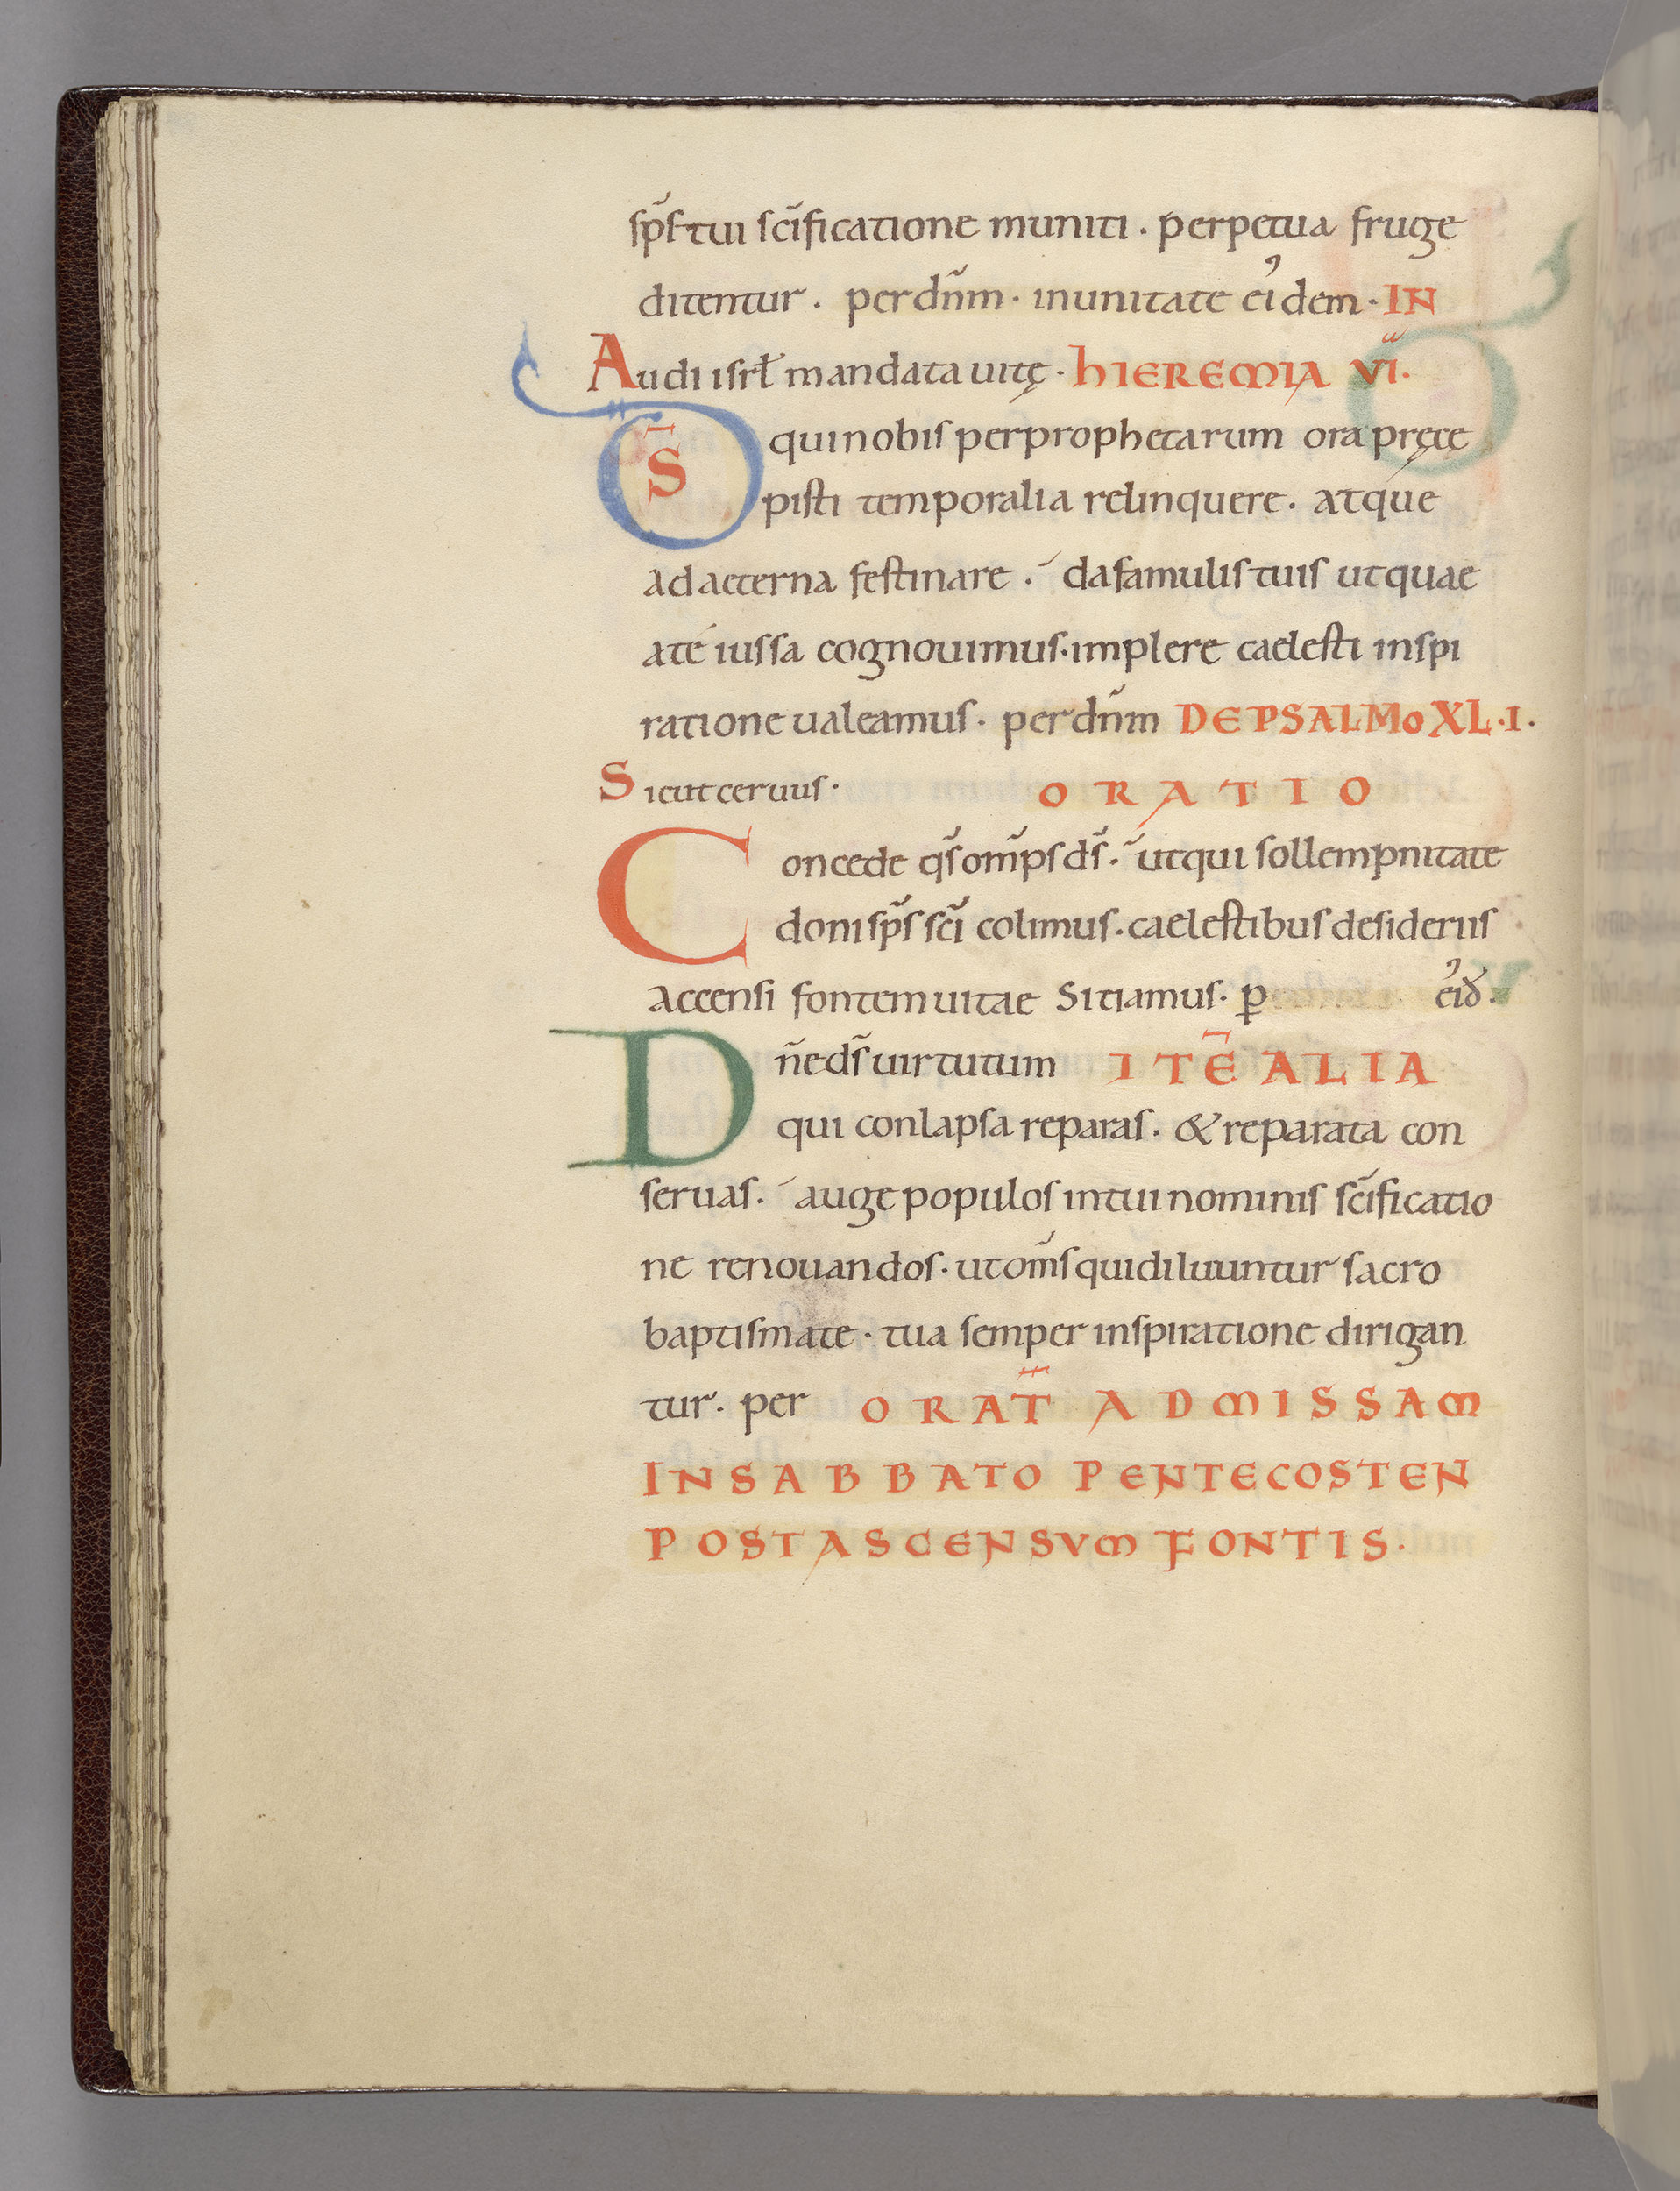 sp̄s tui sc̄ificatione muniti . perpetua fruge
ditentur . per dn̄m · in unitate ei᾽dem · IN
Audi isrł mandata uitę · hIEREMIA VĪI.
D̄S qui nobis per prophetarum ora pręcę
pisti temporalia relinquere . atque
ad aeterna festinare . da famulis tuis ut quae
a té iussa cognouimus · implere caelesti inspi
ratione ualeamus · per dn̄m DE PSALMO XL·I·
Sicut ceruus · ORATIO
Concede qs̄ om̄ps ds̄ · ut qui sollempnitate
doni sp̄s sc̄i colimus . caelestibus desideriis
accensi fontem uitae Sitiamus · ꝑ ei᾽đ .
Dn̄e ds̄ uirtutum ITĒ ALIA
qui conlapsa reparas . & reparata con
seruas . auge populos in tui nominis sc̄ificatio
ne renouandos · ut om̄s qui diluuntur sacro
baptismate · tua semper inspiratione dirigan
tur · per ORAT̄ AD MISSAM
IN SABBATO PENTECOSTEN
POST ASCENSVM FONTIS ·